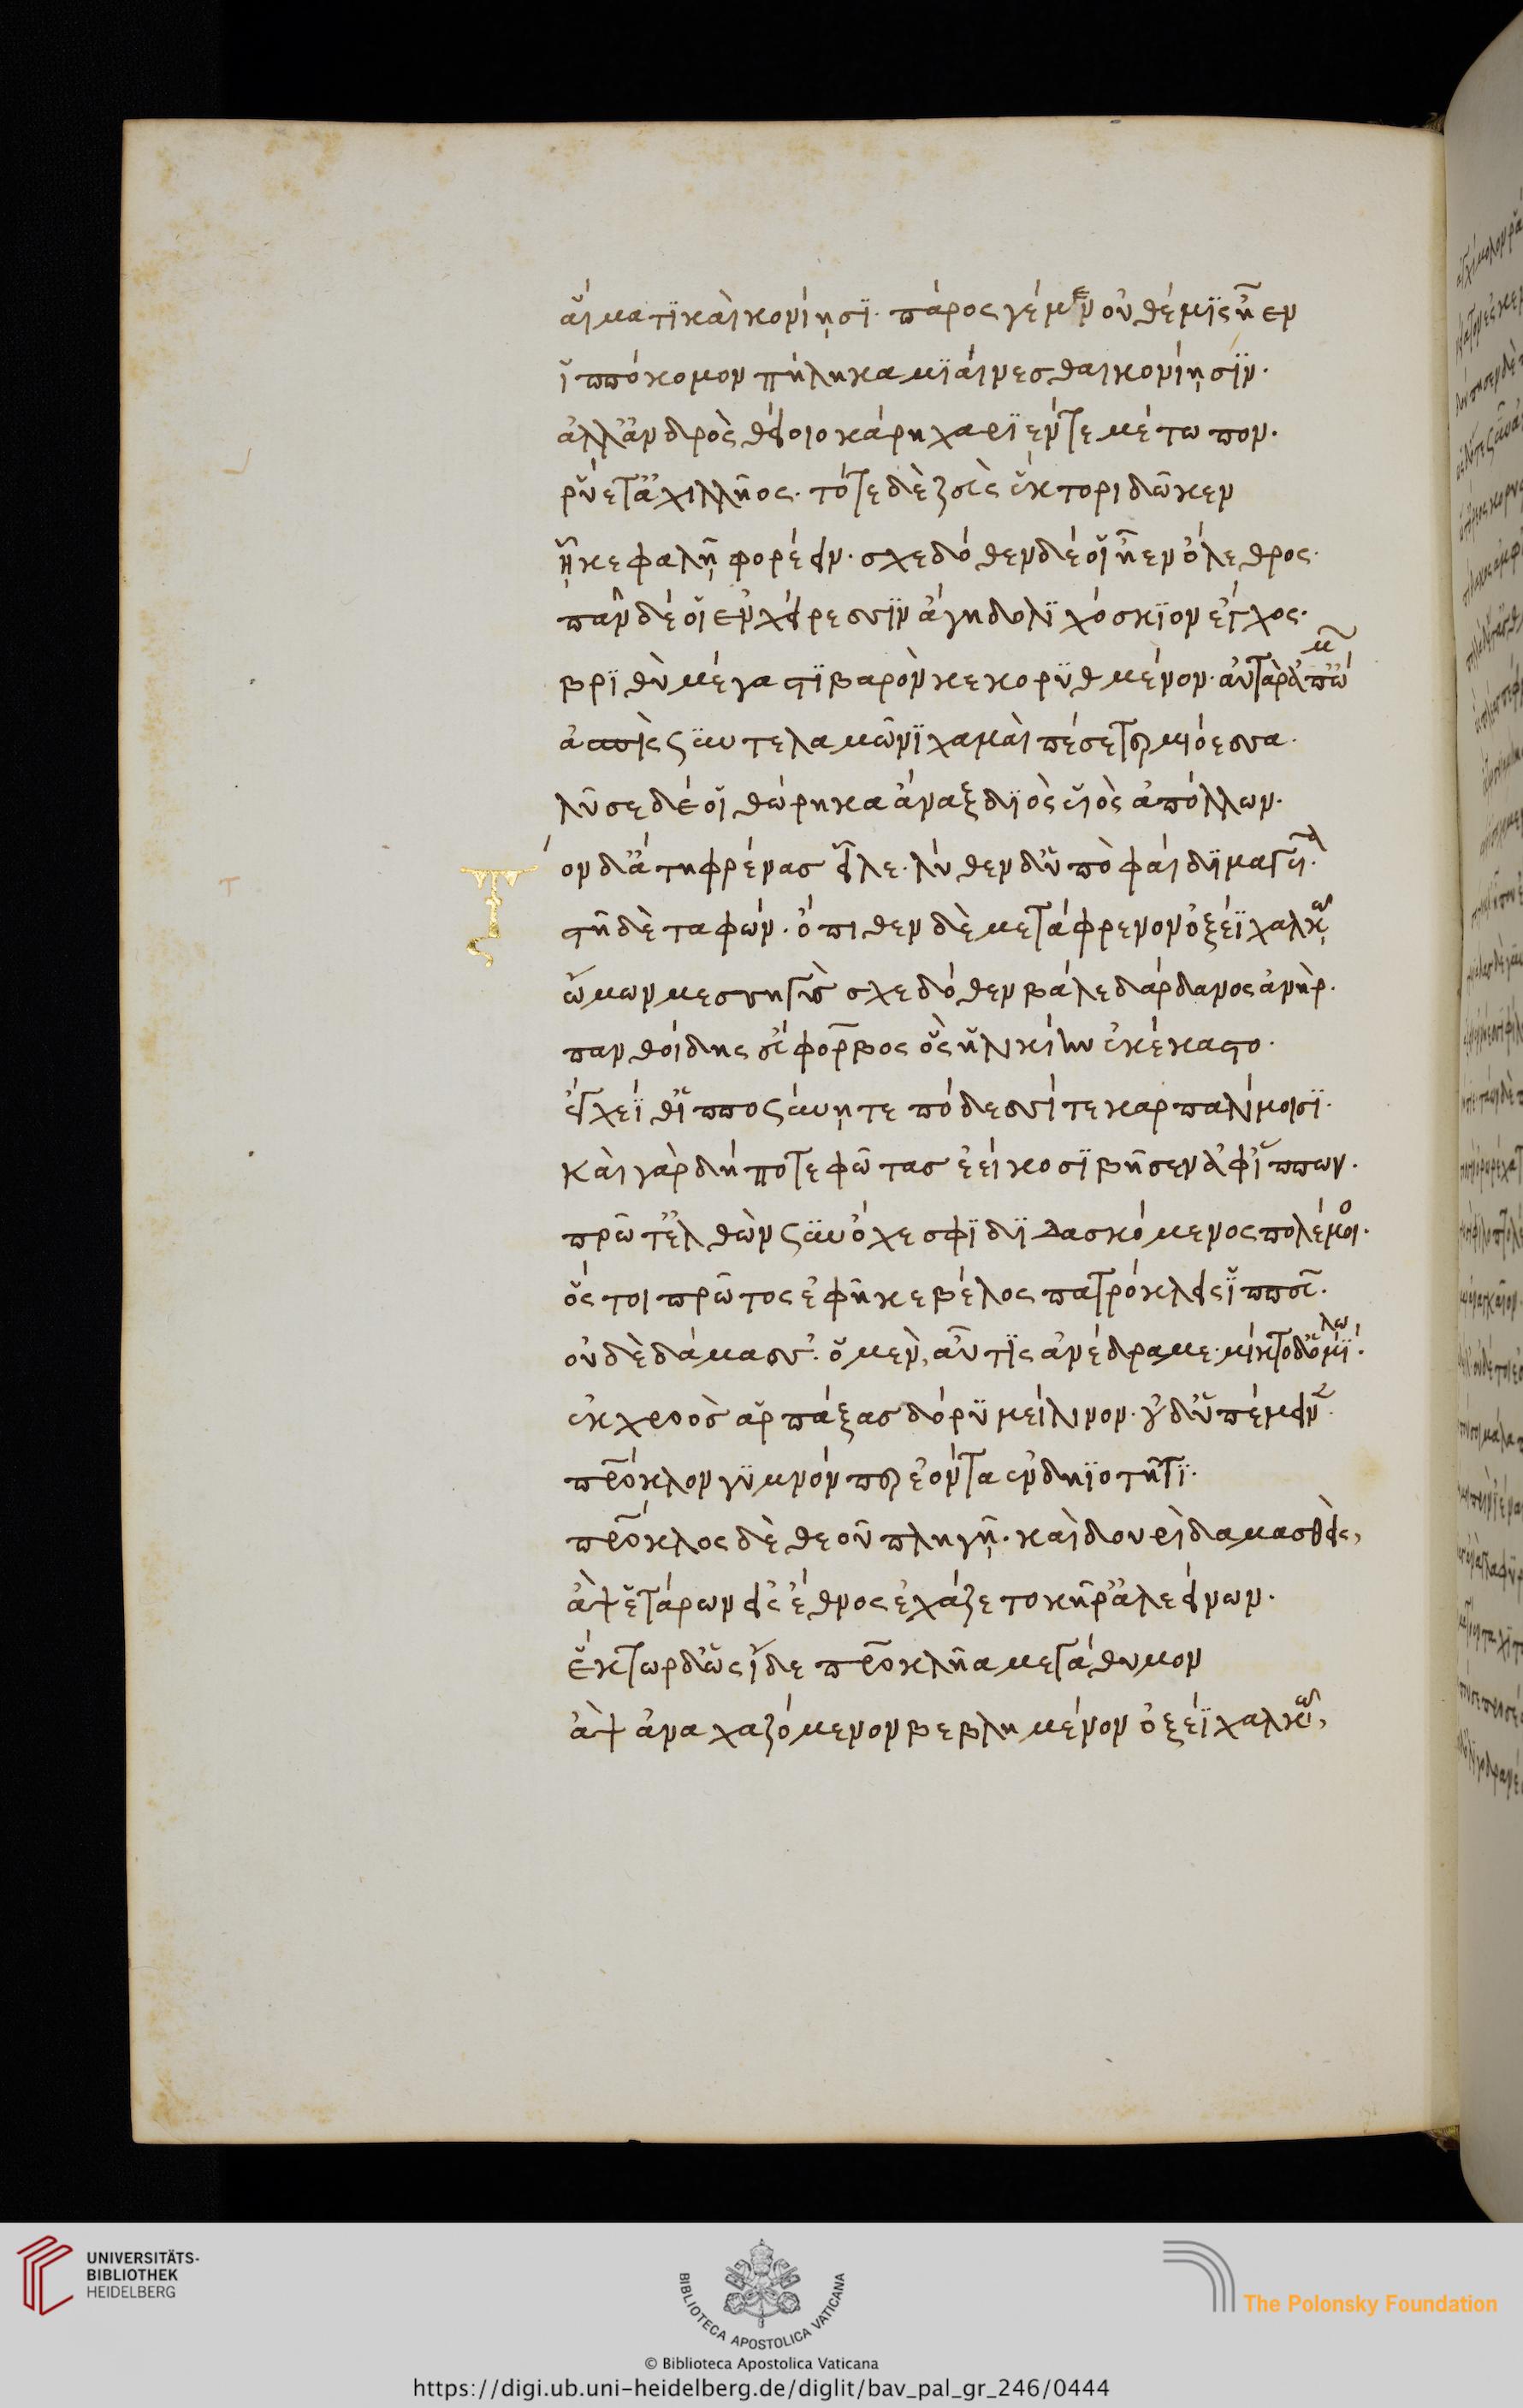 αἵματι καὶ κονίῃσι· πάρος γε μὲν οὐ θέμις ἦεν
ἱππόκομον πήληκα μιαίνεσθαι κονίῃσιν·
ἀλλ' ἀνδρὸς θείοιο κάρη χαρίεν τε μέτωπον·
ῥύετ' ἀχιλλῆος· τότε δὲ ζεὺς ἕκτορι δῶκεν
ᾗ κεφαλῇ φορέειν· σχεδόθεν δέ οἱ ἦεν ὄλεθρος·
πᾶν δέ οἱ ἐν χείρεσσιν ἄγη δολιχόσκιον ἔγχος·
βριθὺ μέγα στιβαρὸν κεκορυθμένον· αὐτὰρ ἀπ' ὤμων
ἀσπὶς σὺν τελαμῶνι χαμαὶ πέσε τερμιόεσσα·
λῦσε δέ οἱ θώρηκα ἄναξ διὸς υἱὸς ἀπόλλων·
Τὸν δ' ἄτη φρένας εἷλε· λύθεν δ' ὑπὸ φαίδιμα γυῖα·
στῆ δὲ ταφών· ὄπιθεν δὲ μετάφρενον ὀξέϊ χαλκῷ
ὤμων μεσσηγὺς σχεδόθεν βάλε δάρδανος ἀνήρ·
πανθοίδης εὔφορβος ὃς ἡλικίην ἐκέκαστο·
ἔγχεΐ θ' ἱπποσύνῃ τε πόδεσσί τε καρπαλίμοισι·
καὶ γὰρ δή ποτε φῶτας ἐείκοσι βῆσεν ἀφ' ἵππων·
πρῶτ' ἐλθὼν σὺν ὄχεσφι διδασκόμενος πολέμοιο·
ὅς τοι πρῶτος ἐφῆκε βέλος πατρόκλεις ἱππεῦ·
οὐδὲ δάμασσ'· ὁ μὲν, αὖτις ἀνέδραμε· μίκτο δ' ὁμίλω·
ἐκ χροὸς ἁρπάξας δόρυ μείλινον· οὐδ' ὑπέμεινε·
πάτροκλον γυμνόν περ ἐόντα ἐν δηϊοτῆτι·
πάτροκλος δὲ θεοῦ πληγῇ· καὶ δουρὶ δαμασθείς,
ἂψ ἑτάρων εἰς ἔθνος ἐχάζετο κῆρ' ἀλεείνων·
ἕκτωρ δ' ὡς εἶδε πάτροκλῆα μεγάθυμον
ἂψ ἀναχαζόμενον βεβλημένον ὀξέϊ χαλκῷ,
UNIVERSITÄTS-
BIBLIOTHEK
HEIDELBERG
BIBLIOTECA APOSTOLICA VATICANA
The Polonsky Foundation
© Biblioteca Apostolica Vaticana
https://digi.ub.uni-heidelberg.de/diglit/bav_pal_gr_246/0444